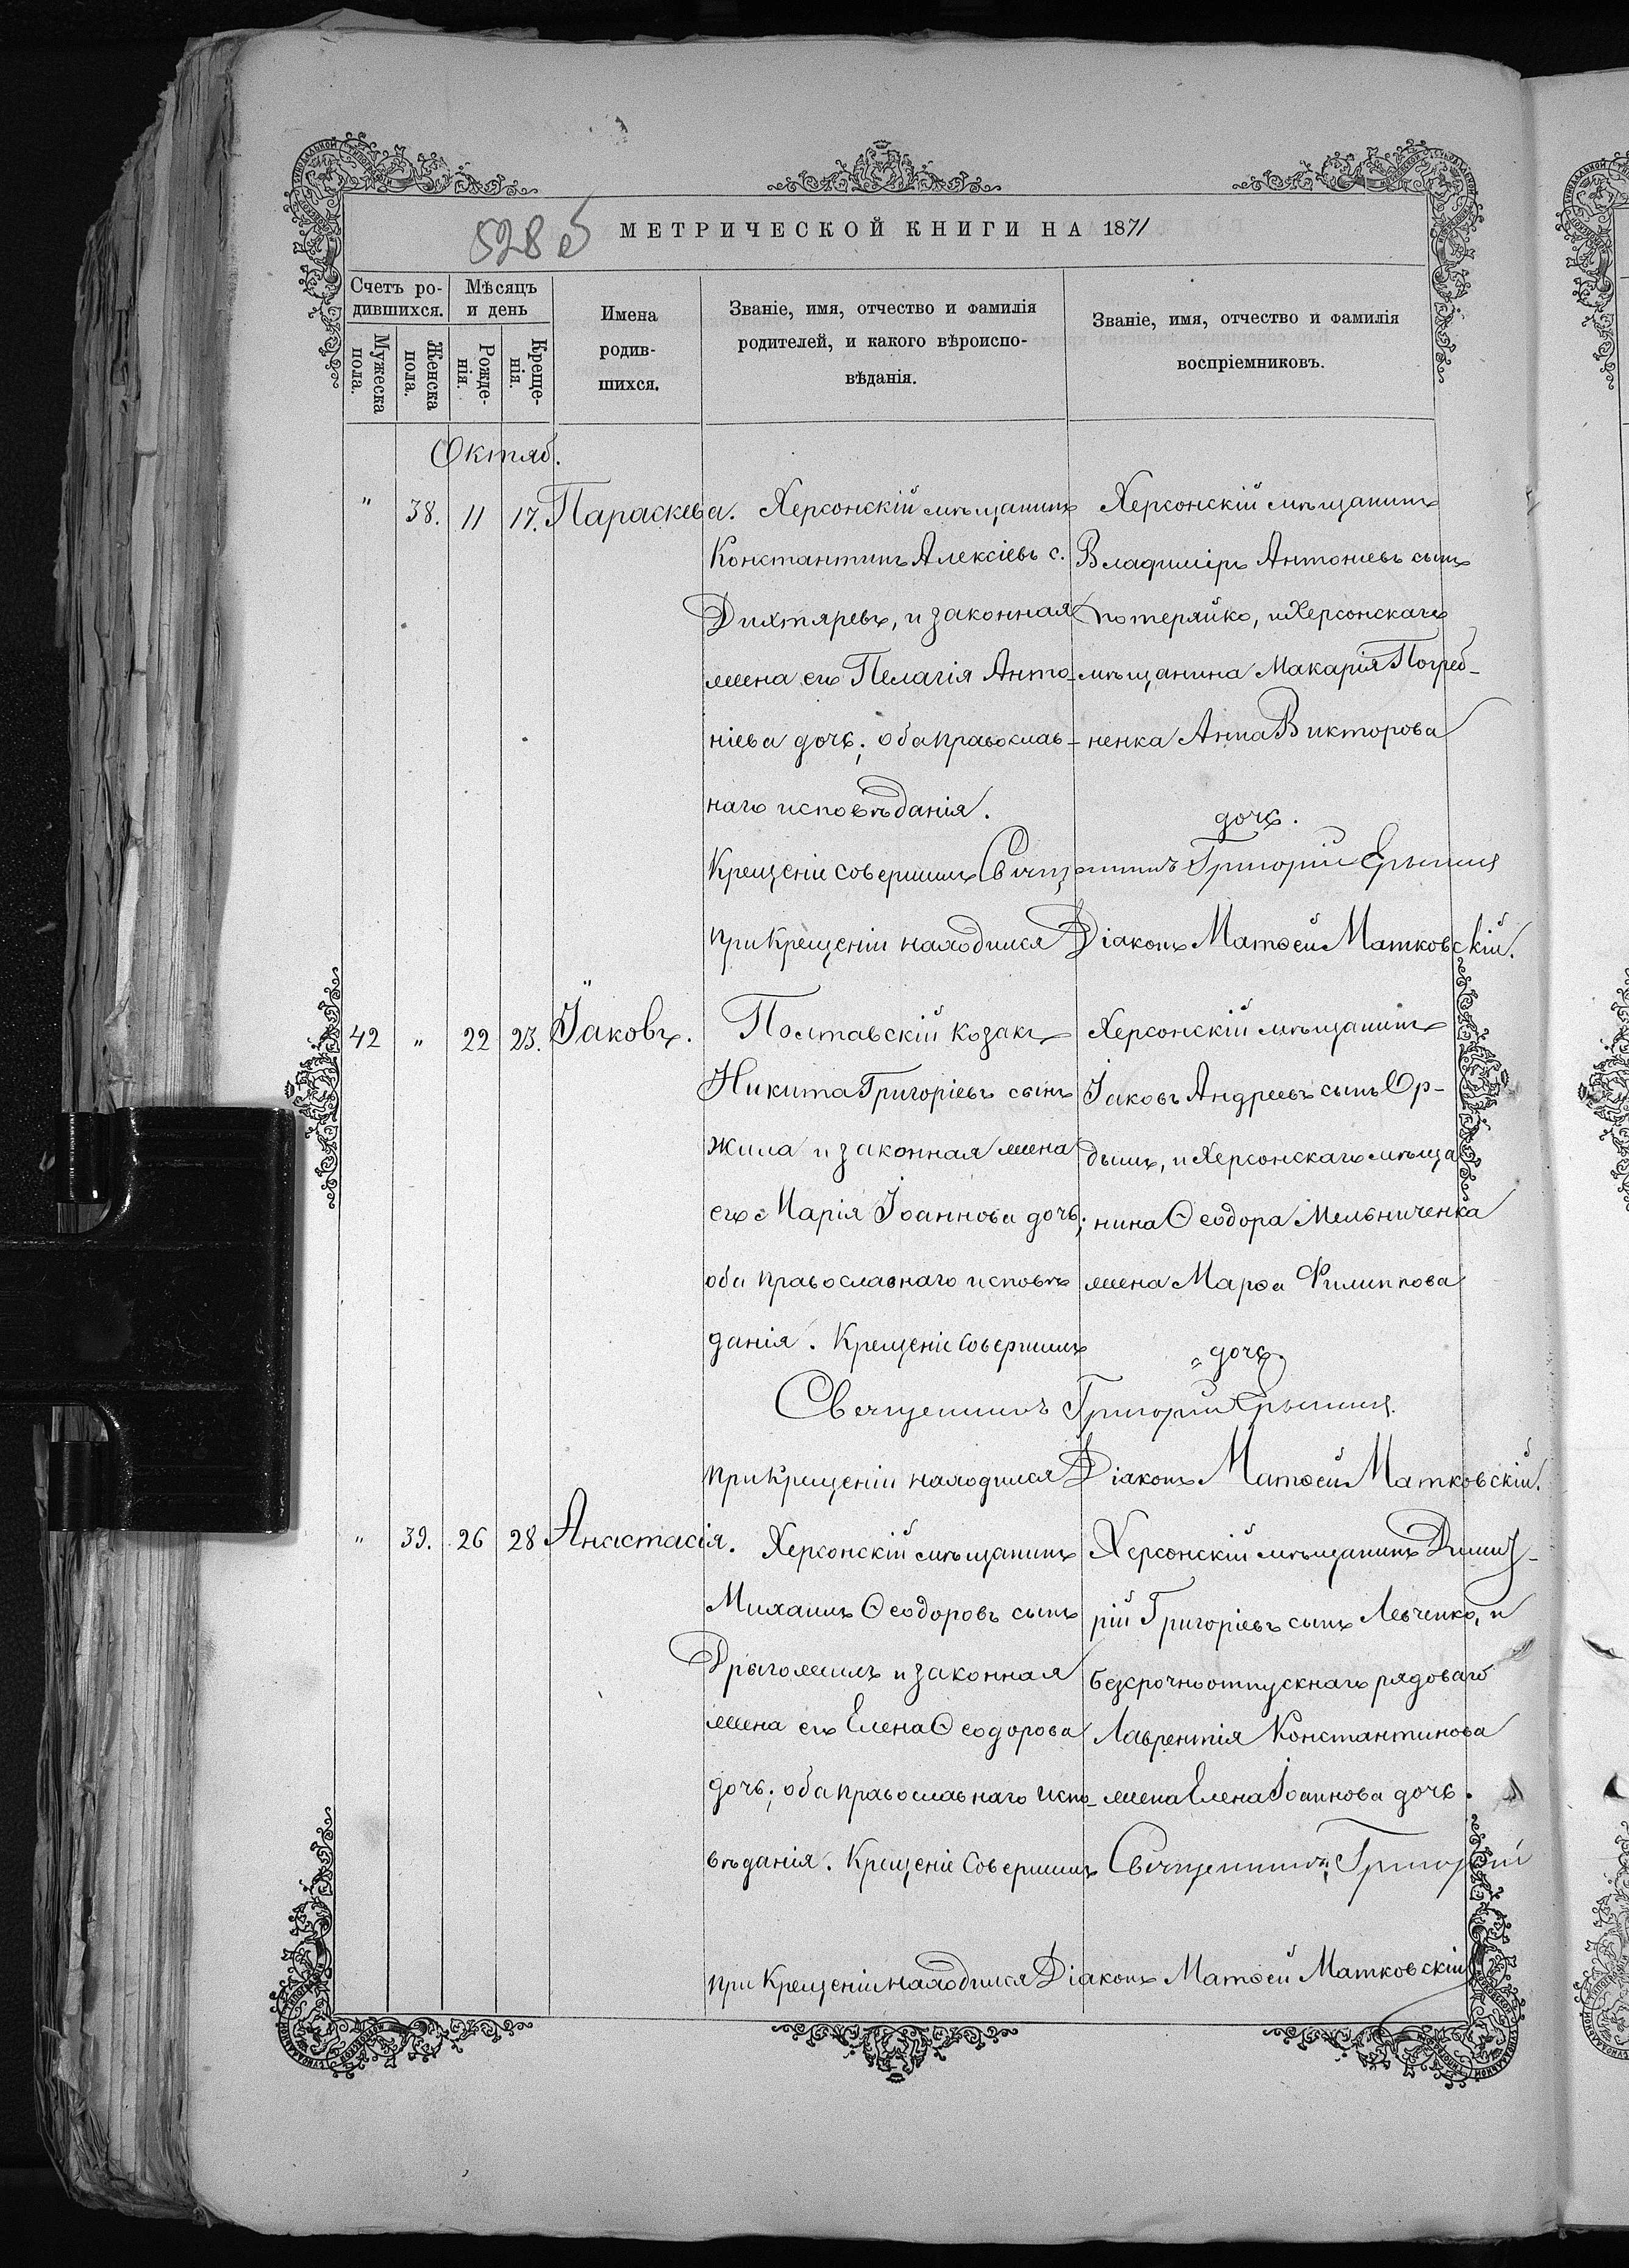 МЕТРИЧЕСКОЙ КНИГИ НА 1871
528 об
Счетъ ро-
дившихся.
Мужеска
пола.
Женска
пола.
Мѣсяцъ
и день
Рожде-
нія.
Креще-
нія.
Имена
родив-
шихся.
Званіе, имя, отчество и фамилія
родителей, и какого вѣроиспо-
вѣданія.
Званіе, имя, отчество и фамилія
воспріемниковъ.
Октяб.
" 38. 11 17. Параскева.
Херсонскій мѣщанинъ
Константинъ Алексіевъ с.
Дихтяревъ, и законная
жена его Пелагія Анто-
ніева дочь; оба православ-
наго исповѣданія.
Херсонскій мѣщанинъ
Владиміръ Антоніевъ сынъ
Потеряйко, и Херсонскаго
мѣщанина Макарія Погреб-
ненка Анна Викторова
дочь.
Крещеніе совершилъ Священникъ Григорій
при Крещеніи находился Діаконъ Матѳей Матковскій.
42 " 22 23. Іаковъ.
Полтавскій козакъ
Никита Григоріевъ сынъ
Жила и законная жена
его Марія Іоаннова дочь;
оба православнаго исповѣ
данія. Крещеніе совершилъ
Херсонскій мѣщанинъ
Іаковъ Андреевъ сынъ Ор-
дынъ, и Херсонскаго мѣща
нина Ѳеодора Мельниченка
жена Марѳа Филиппова
" дочь.
Священникъ Григорій
при Крещеніи находился Діаконъ Матѳей Матковскій.
" 39. 26 28 Анастасія.
Херсонскій мѣщанинъ
Михаилъ Ѳеодоровъ сынъ
Дрыгожилъ и законная
жена его Елена Ѳеодорова
дочь; оба православнаго испо-
вѣданія. Крещеніе Совершилъ Священникъ Григорій
Херсонскій мѣщанинъ Димит-
рій Григоріевъ сынъ Левченко, и
безсрочноотпускнаго рядоваго
Лаврентія Константинова
жена Елена Іоаннова дочь.
при Крещеніи находился Діаконъ Матѳей Матковскій